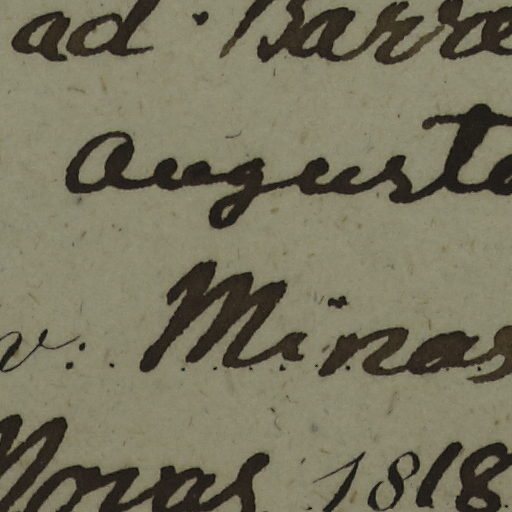 ad Barre
Auguste
v. Minas
Novas 1818